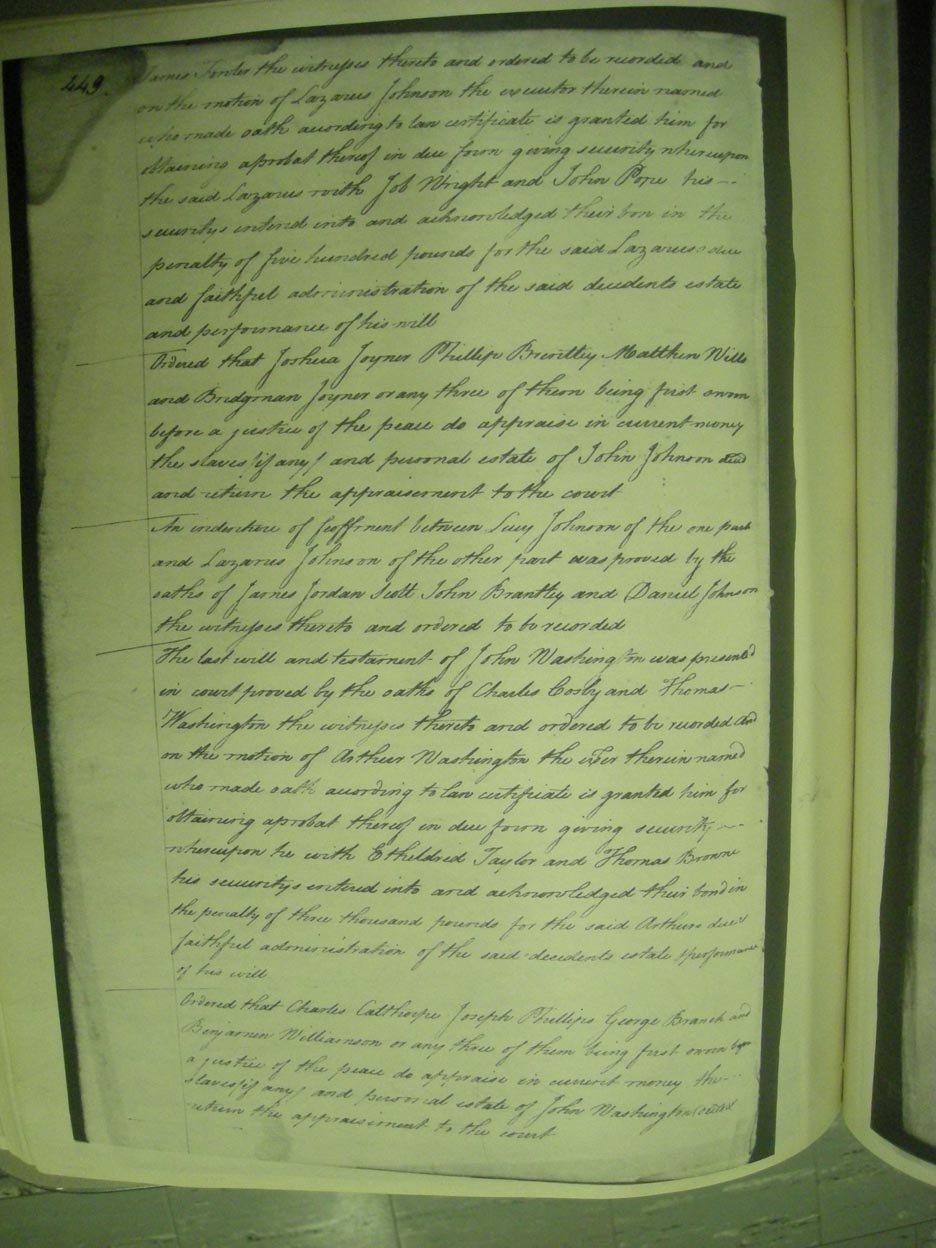 449.
James the witnesses thereto and ordered to be recorded and
on the motion of Lazarus Johnson the executor therein named
who made oath according to law certificate is granted him for
obtaining aprobat thereof in due form giving security whereupon
the said Lazarus with Job Wright and John Pope his —
securitys entered into and acknowledged their bon in the
penalty of five hundred pounds for the said Lazarus's due
and faithful administration of the said decedents estate
and performance of his will
Ordered that Joshua Joyner Phillip Matthew Wills
and Bridgman Joyner or any three of them being first sworn
before a justice of the peace do appraise in current money
the slaves (if any) and personal estate of John Johnson decd
and return the appraisement to the court
An indenture of feoffment between Lucy Johnson of the one part
and Lazarus Johnson of the other part was proved by the
oaths of James Jordan Scott John Brantley and Daniel Johnson
the witnesses thereto and ordered to be recorded
The last will and testament of John Washington was presented
in court proved by the oaths of Charles Cosby and Thomas —
Washington the witnesses thereto and ordered to be recorded and
on the motion of Arthur Washington the Exer therein named
who made oath according to law certificate is granted him for
obtaining aprobat thereof in due form giving security —
whereupon he with Etheldred Taylor and Thomas Browne
his securitys entered into and acknowledged their bond in
the penalty of three thousand pounds for the said Arthurs due &
faithful administration of the said decedents estate & performance
of his will
Ordered that Charles Calthorpe Joseph Phillips George Branch and
Benjamin Williamson or any three of them being first sworn before
a justice of the peace do appraise in current money the —
slaves (if any) and personal estate of John Washington decd
return the appraisement to the court